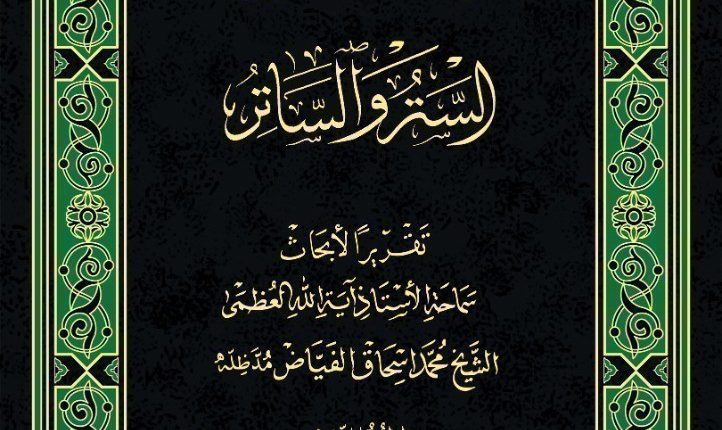 السَّتْرُ وَالسَّاتِرُ
تَقْرِيرًا لأَبْحَاثِ
سَمَاحَةِ الأُسْتَاذِ آيَةِ اللهِ العُظْمَى
الشَّيْخ مُحَمَّد إِسْحَاق الفَيَّاض مُدَّظِلُّهُ